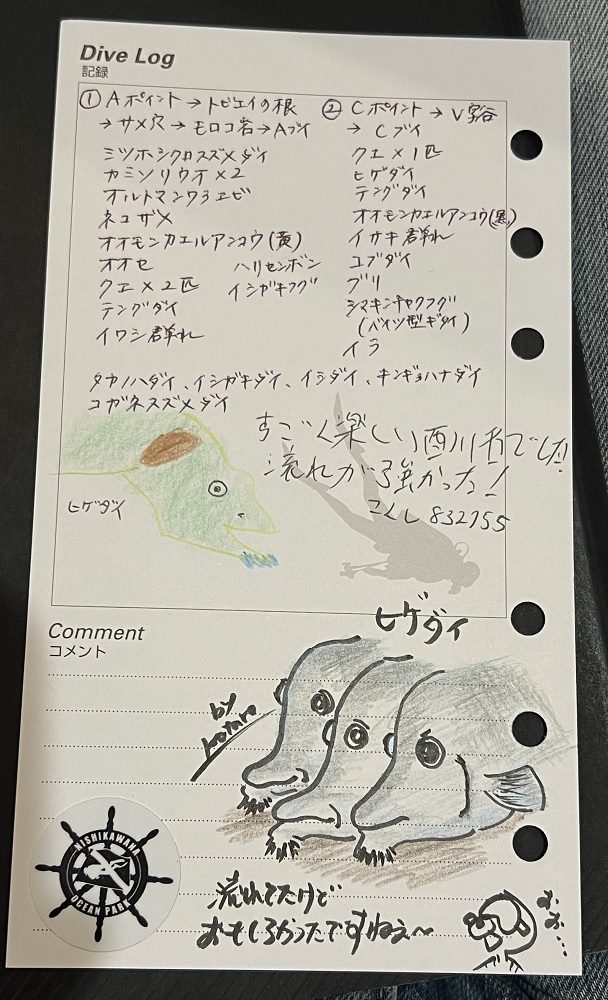 Dive Log
記録
① Aポイント→トビエイの根
→サメ穴→モロコ岩→Aブイ
ミツボシクロスズメダイ
カミソリウオ×2
オルトマンワラエビ
ネコザメ
オオモンカエルアンコウ(黄)
オオセ ハリセンボン
クエ×2匹 イシガキフグ
テングダイ
イワシ群れ
② Cポイント→V字谷
→Cブイ
クエ×1匹
ヒゲダイ
テングダイ
オオモンカエルアンコウ(黒)
イサキ群れ
コブダイ
ブリ
シマキンチャクフグ
(バイツ型ギダイ)
イラ
タカノハダイ、イシガキダイ、イシダイ、キンギョハナダイ
コガネスズメダイ
すごく楽しい西川名でした!
流れが強かった!
832755
ヒゲダイ
Comment
コメント
ヒゲダイ
by kotaro
流れてたけど
おもしろかったですねぇ〜
おぉ…
NISHIKAWANA
OCEAN PARK